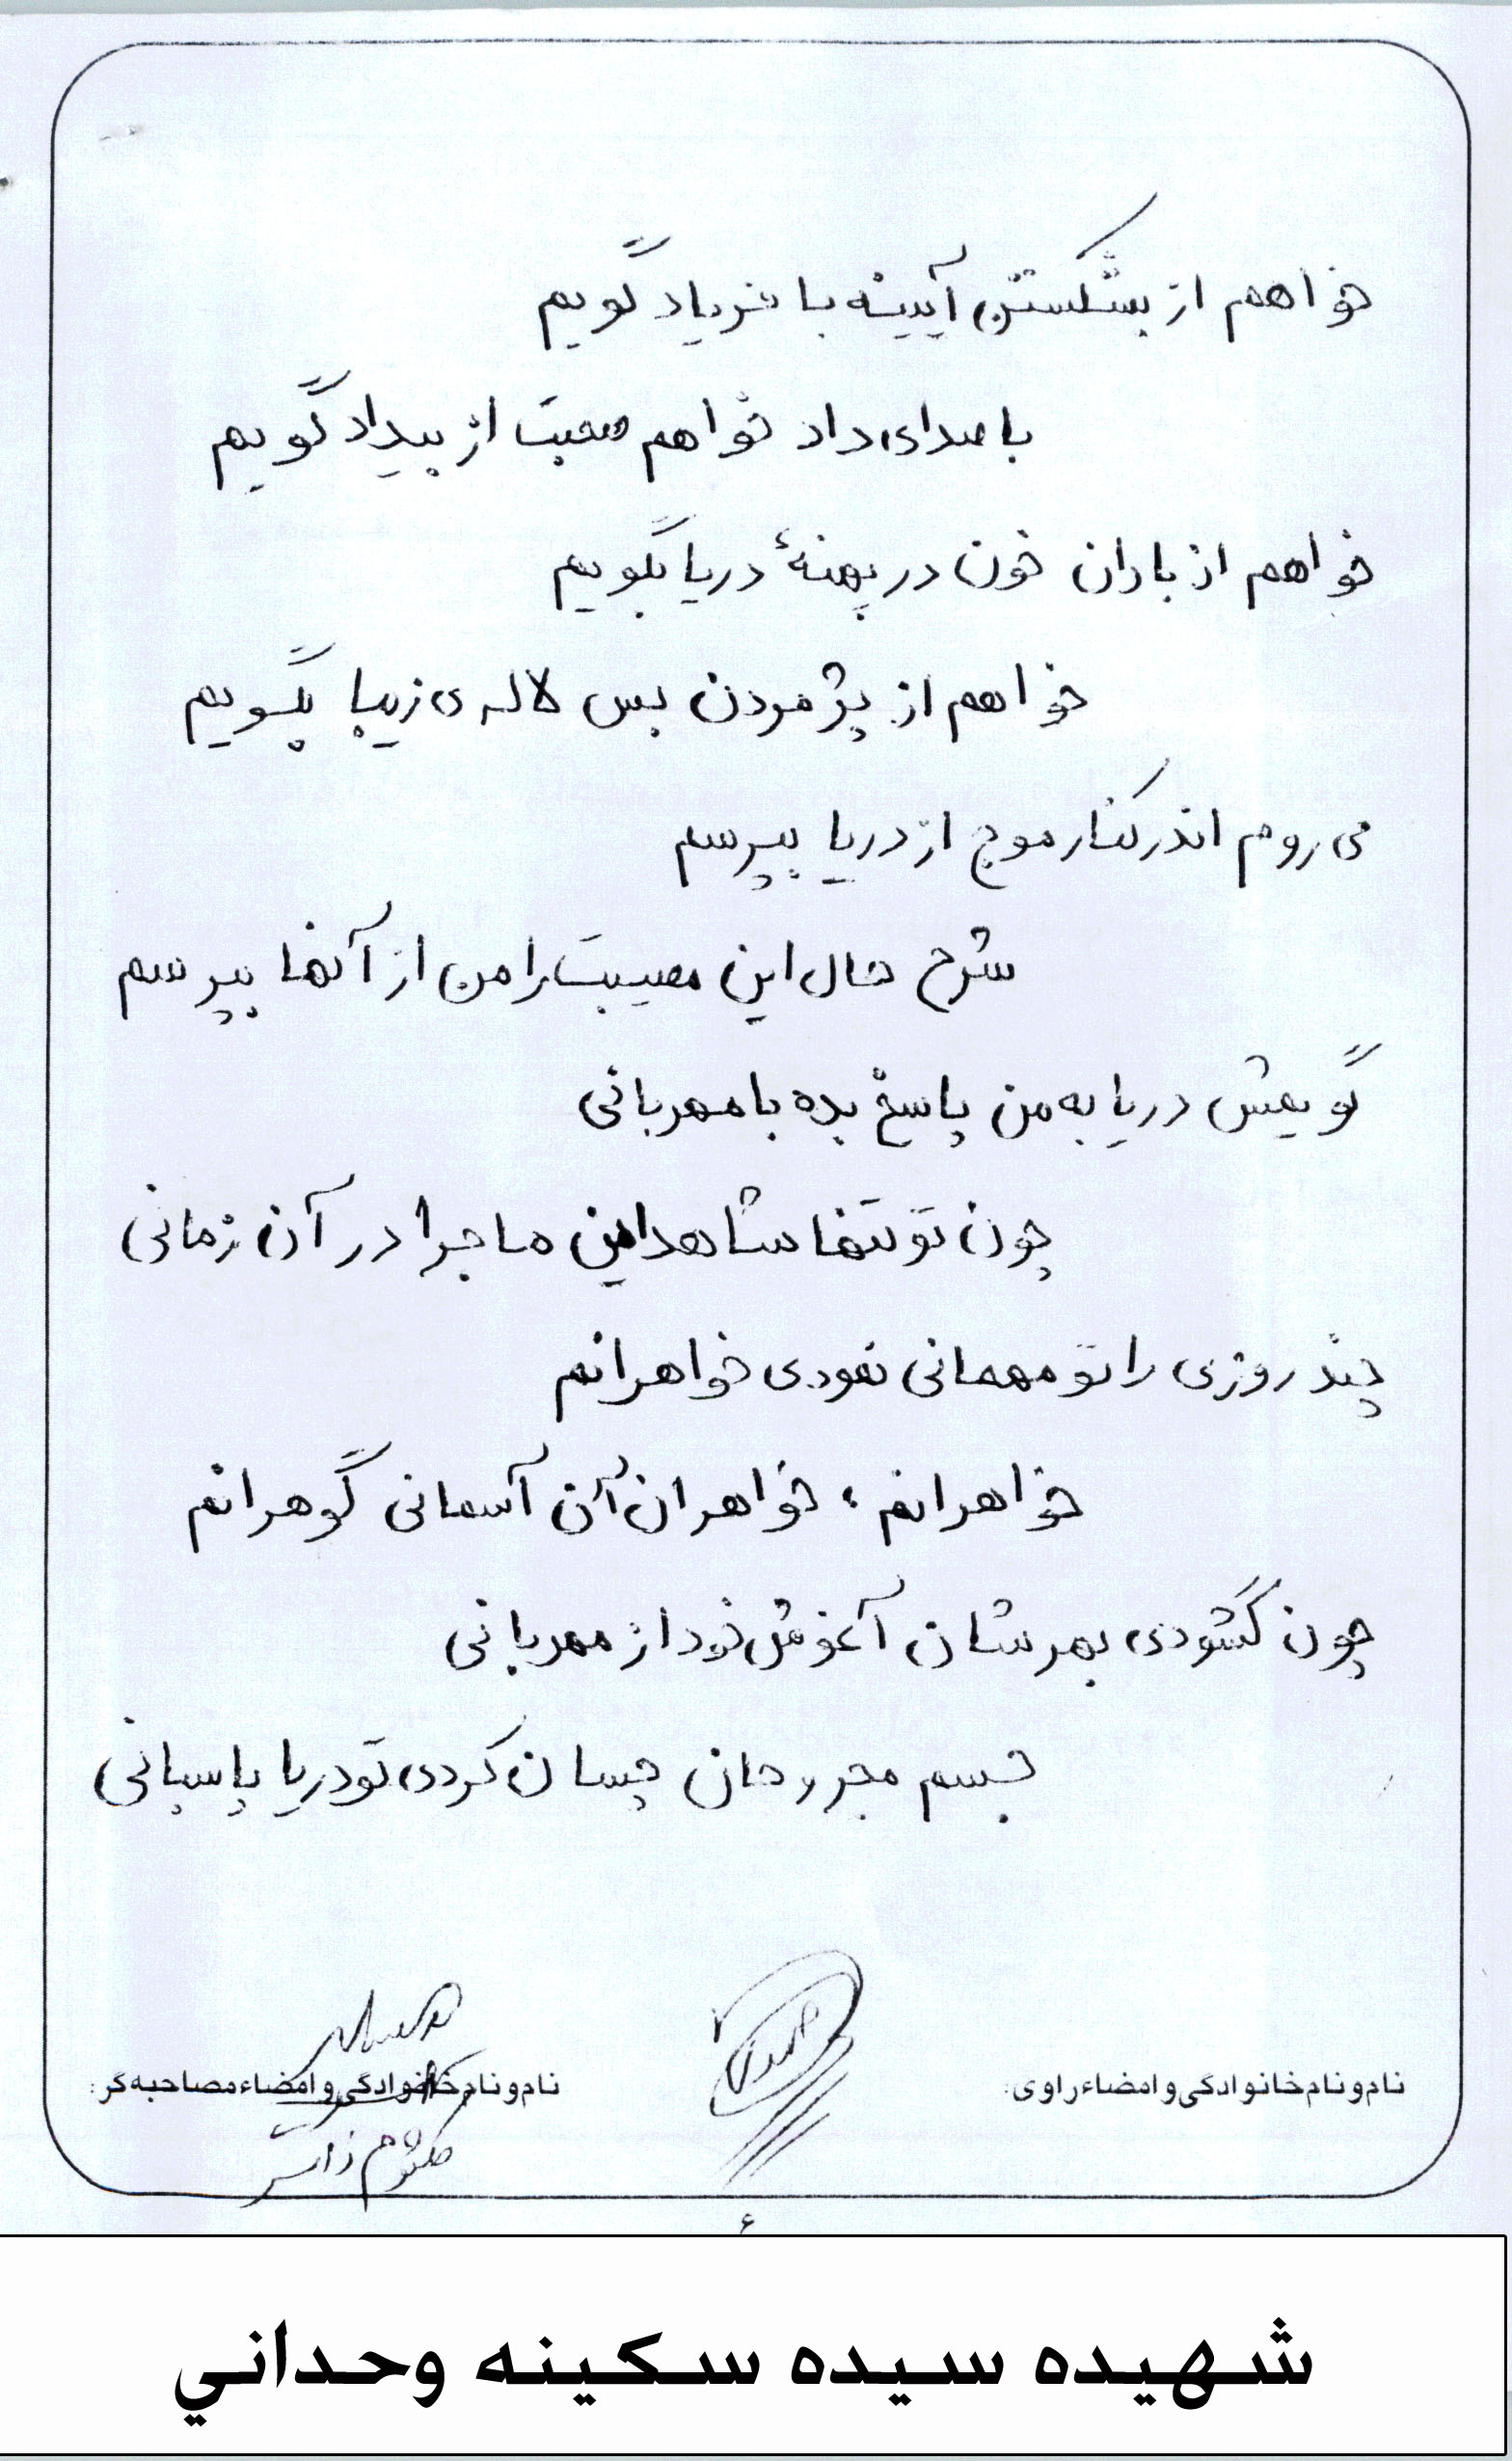 خواهم از بشکستن آیینه با فریاد گویم
با صدای داد خواهم صحبت از بیداد گویم
خواهم از باران خون در پهنۀ دریا بگویم
خواهم از پژمردن بس لاله ی زیبا بگویم
می روم اندر کنار موج از دریا بپرسم
شرح حال این مصیبت را من از آنها بپرسم
گویمش دریا به من پاسخ بده با مهربانی
چون تو تنها شاهد این ماجرا در آن زمانی
چند روزی را تو مهمانی نمودی خواهرانم
خواهرانم ، خواهران آن آسمانی گوهرانم
چون گشودی بهرشان آغوش خود از مهربانی
جسم مجروحان چسان کردی تو دریا پاسبانی
نام و نام خانوادگی و امضاء راوی:
نام و نام خانوادگی و امضاء مصاحبه گر:
کلثوم
۶
شهیده سیده سکینه وحداني